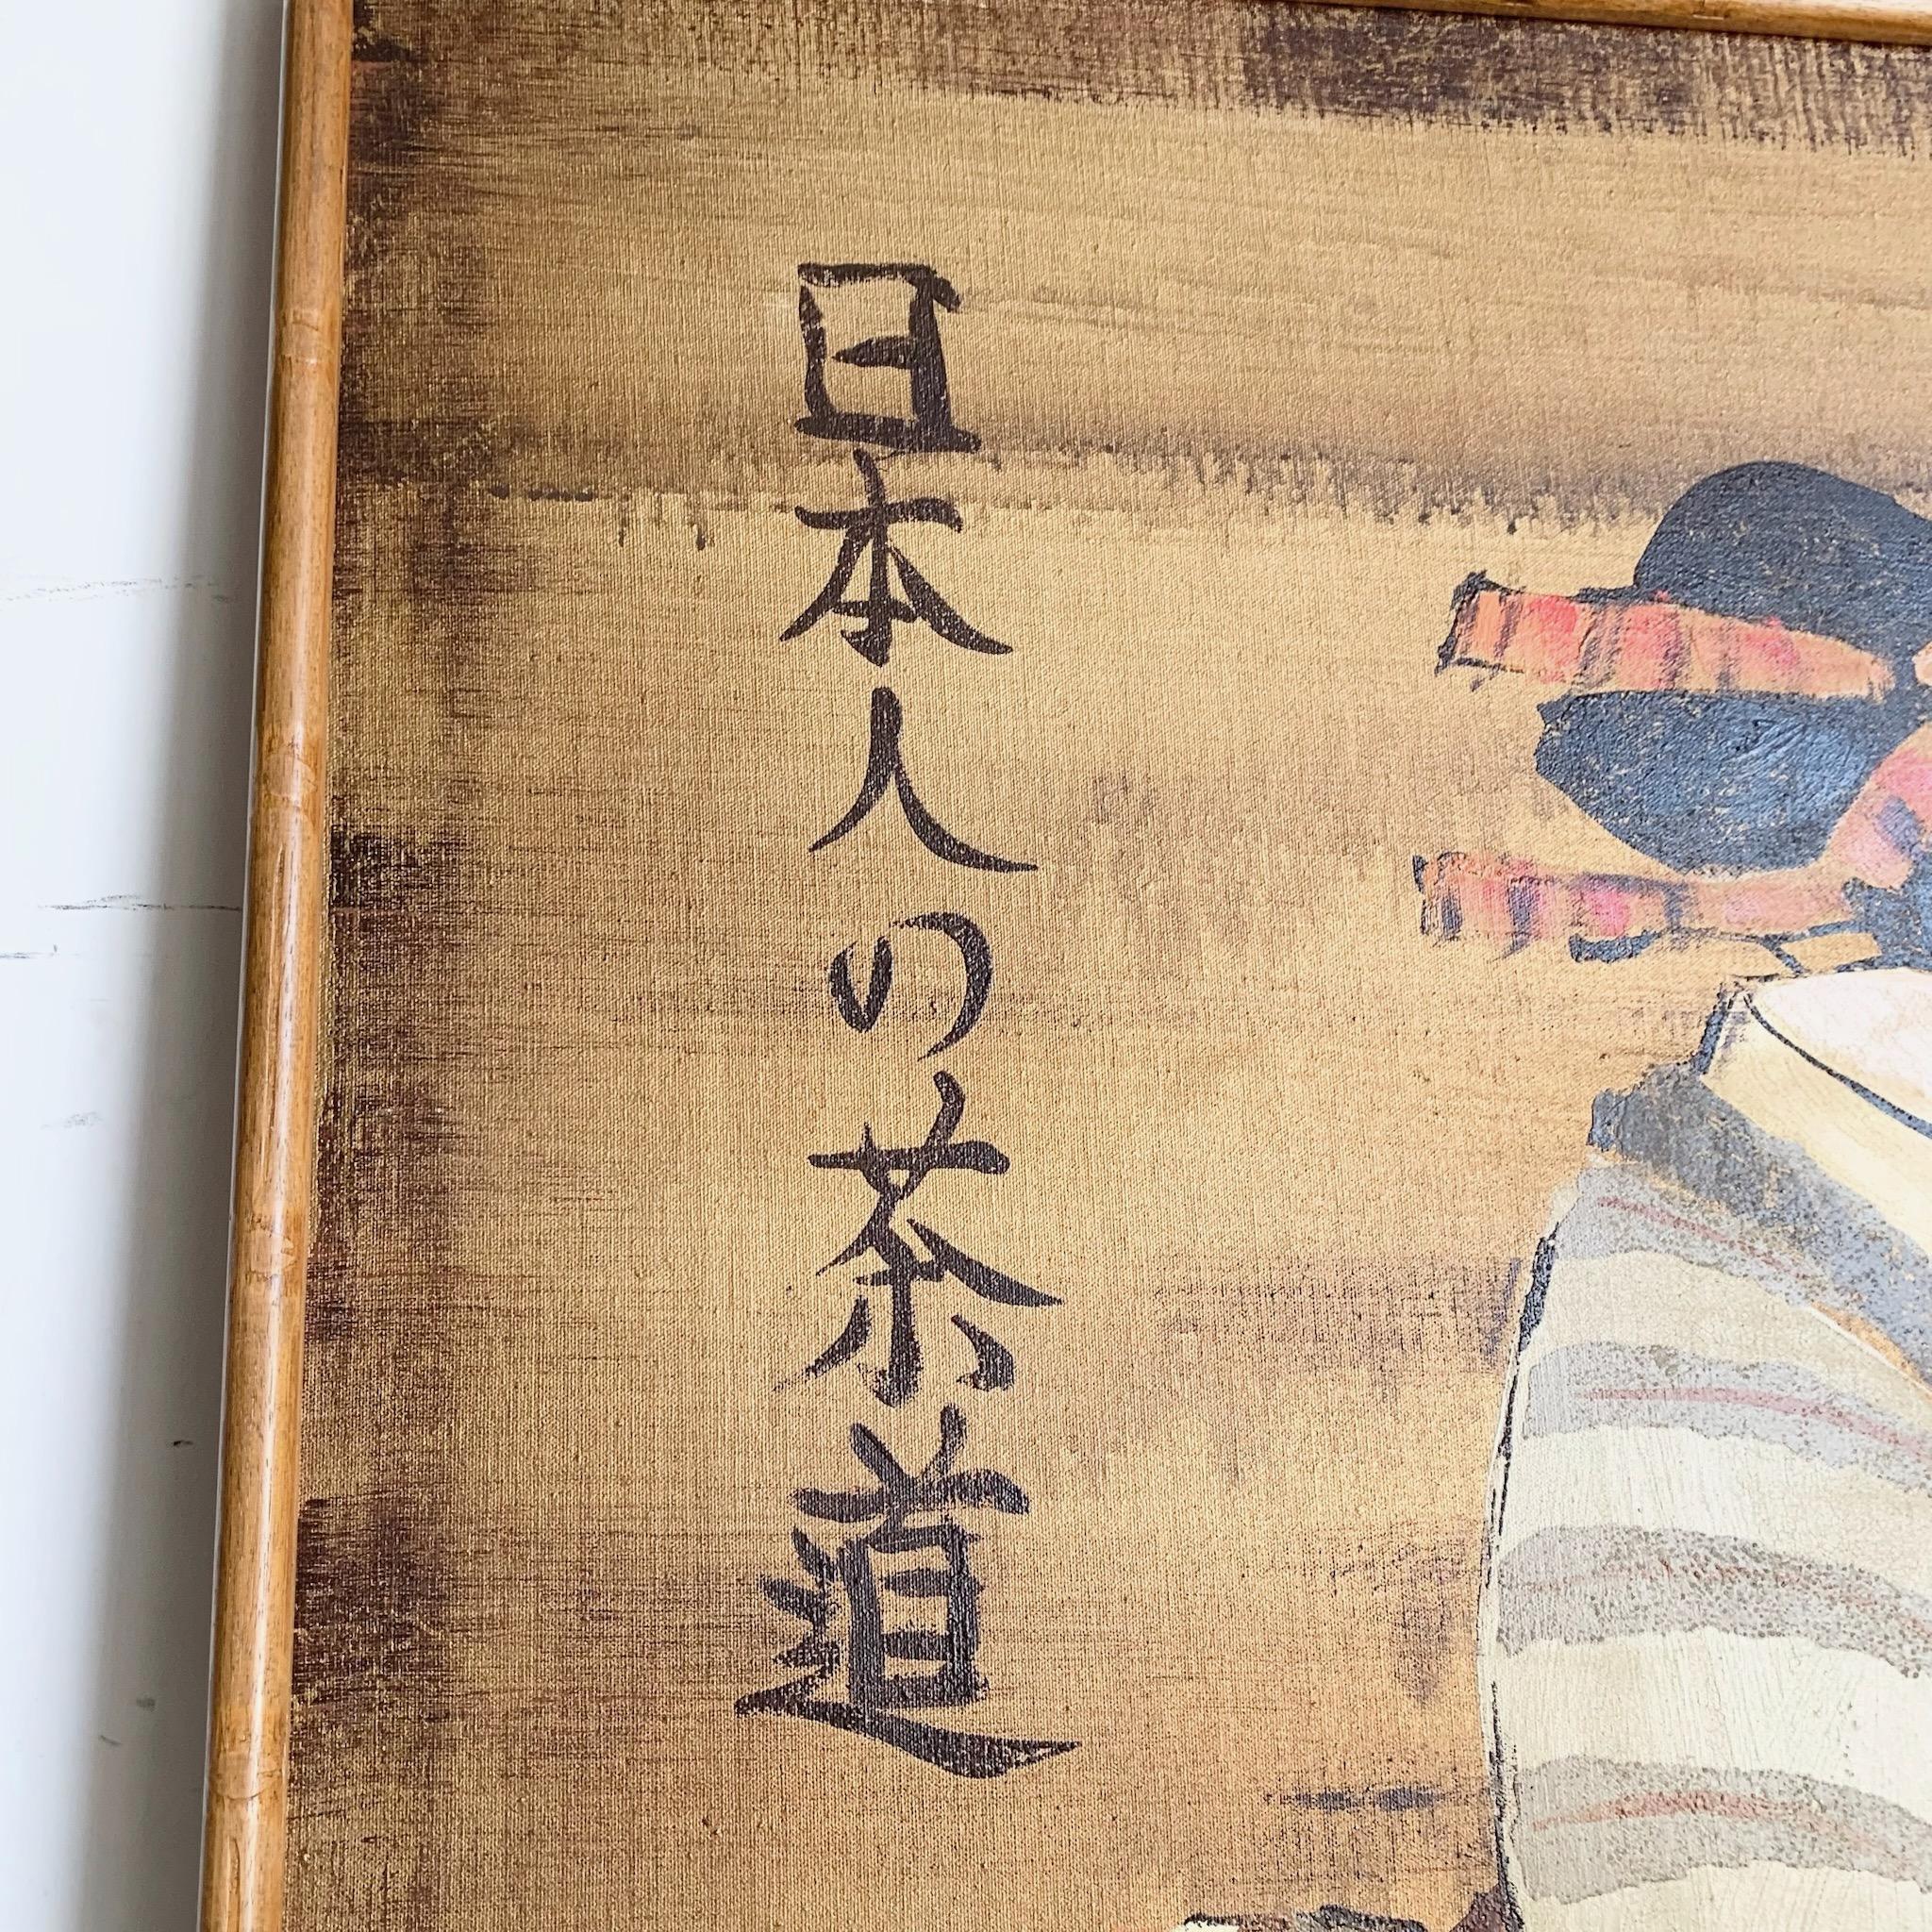 日本人の茶道